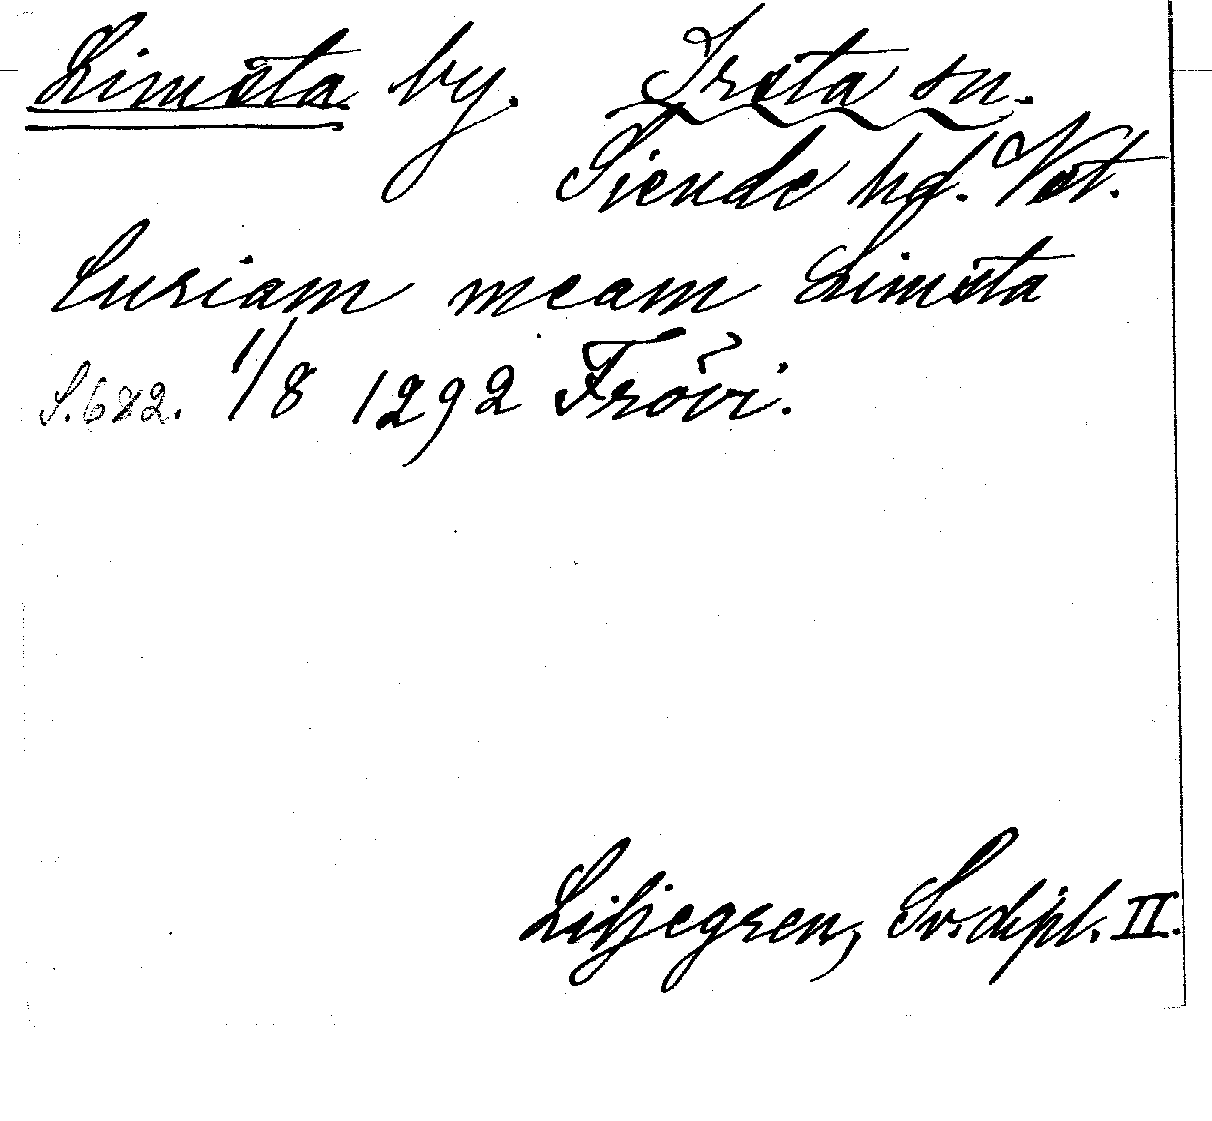 Limsta by. Irsta sn.
Siende hd. Vst.
Curiam meam Limsta
S. 682. 1/8 1292 Frövi.
Liljegren, Sv. dipl. II.